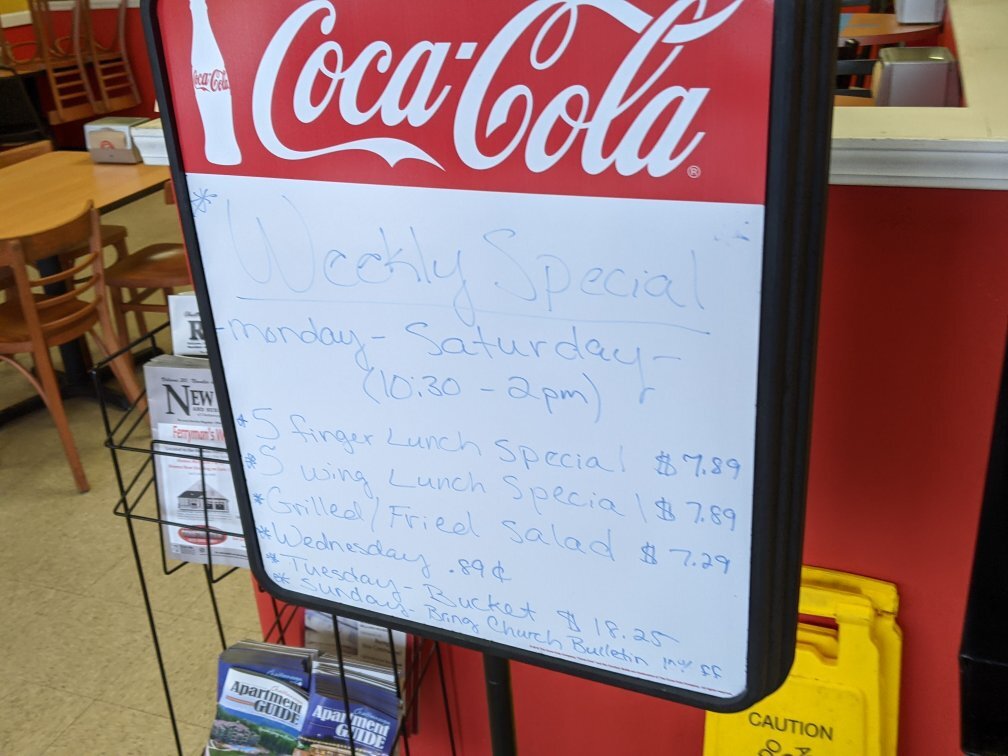 Coca-Cola
Coca-Cola®
* Weekly Special
-monday- Saturday-
(10:30 - 2pm)
* 5 finger Lunch Special $7.89
* 5 wing Lunch Special $7.89
* Grilled/Fried Salad $7.29
* Wednesday .89¢
* Tuesday- Bucket $18.25
* Sunday- Bring Church Bulletin
NEW
Ferryman's
Apartment
GUIDE
Apartment
GUIDE
CAUTION